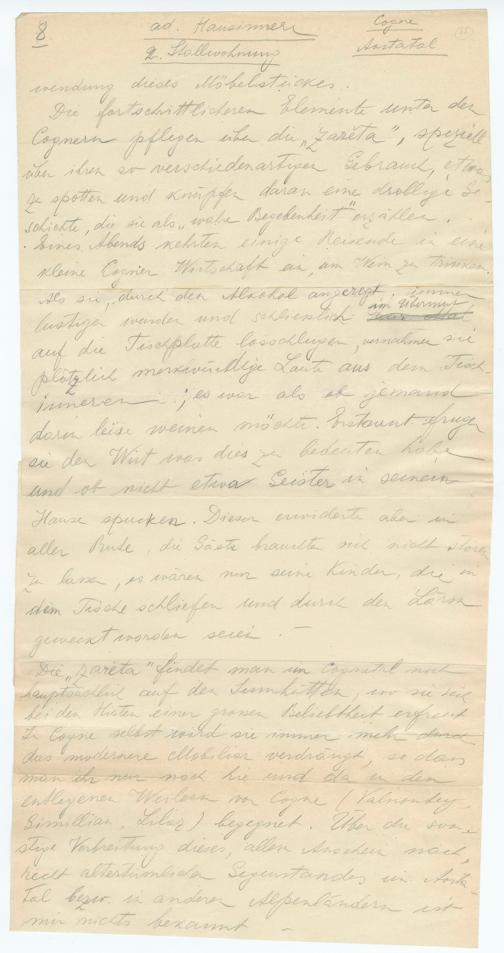 8
ad. Hausinneres
Cogne
2. Stallwohnung
Aostatal
wendung dieses Möbelstückes.
Die fortschrittlicheren Elemente unter den
Cognern pflegen über die „zarëta", speziell
über ihren so verschiedenartigen Gebrauch, etwas
zu spotten und knüpfen daran eine drollige Ge-
schichte, die sie als „wahre Begebenheit" erzählen.
Eines Abends kehrten einige Reisende in eine
kleine Cogner Wirtschaft ein, um Wein zu trinken.
Als sie, durch den Alkohol angeregt, immer
lustiger wurden und schliesslich im Übermut
auf die Tischplatte losschlugen, vernahmen sie
plötzlich merkwürdige Laute aus dem Tisch-
inneren; es war als ob jemand
darin leise weinen möchte. Erstaunt frugen
sie den Wirt was dies zu bedeuten habe
und ob nicht etwa Geister in seinem
Hause spucken. Dieser erwiderte aber in
aller Ruhe, die Gäste brauchten sich nicht stören
zu lassen, es wären nur seine Kinder, die in
dem Tische schliefen und durch den Lärm
geweckt worden seien. –
Die „zarëta" findet man im Cognetal noch
hauptsächlich auf den Sennhütten, wo sie sich
bei den Hirten einer grossen Beliebtheit erfreut
In Cogne selbst wird sie immer mehr durch
das modernere Mobiliar verdrängt, so dass
man ihr nur noch hie und da in den
entlegenen Weilern von Cogne (Valnontey,
Gimillian, Lilaz) begegnet. Über die son-
stige Verbreitung dieses, allem Anschein nach,
recht altertümlichen Gegenstandes im Aosta-
tal bezw. in anderen Alpenländern ist
mir nichts bekannt –